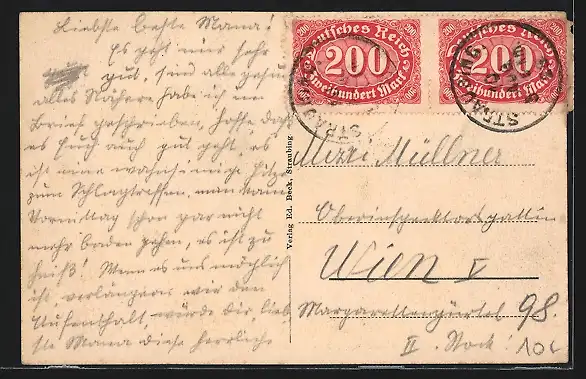 Liebste beste Mama!
Es geht mir sehr
gut, sind alle gesund
alles Nähere habe ich im
Brief geschrieben, hoffe daß
es Euch auch gut geht, es
ist eine wahnsinnige Hitze
zum Schlagtreffen, man kann
Vormittag schon gar nicht
mehr baden gehen, es ist zu
heiß! Wenn es uns möglich
ist verlängern wir den
Aufenthalt, würde Dir lieb
ste Mama diese herrliche
Deutsches Reich
200
Zweihundert Mark
Deutsches Reich
200
Zweihundert Mark
STRAUBING
STRAUBING
Verlag Ed. Beck, Straubing.
Mizzi Müllner
Oberinspektorsgattin
Wien V
Margaretengürtel 98.
II. Stock
10c